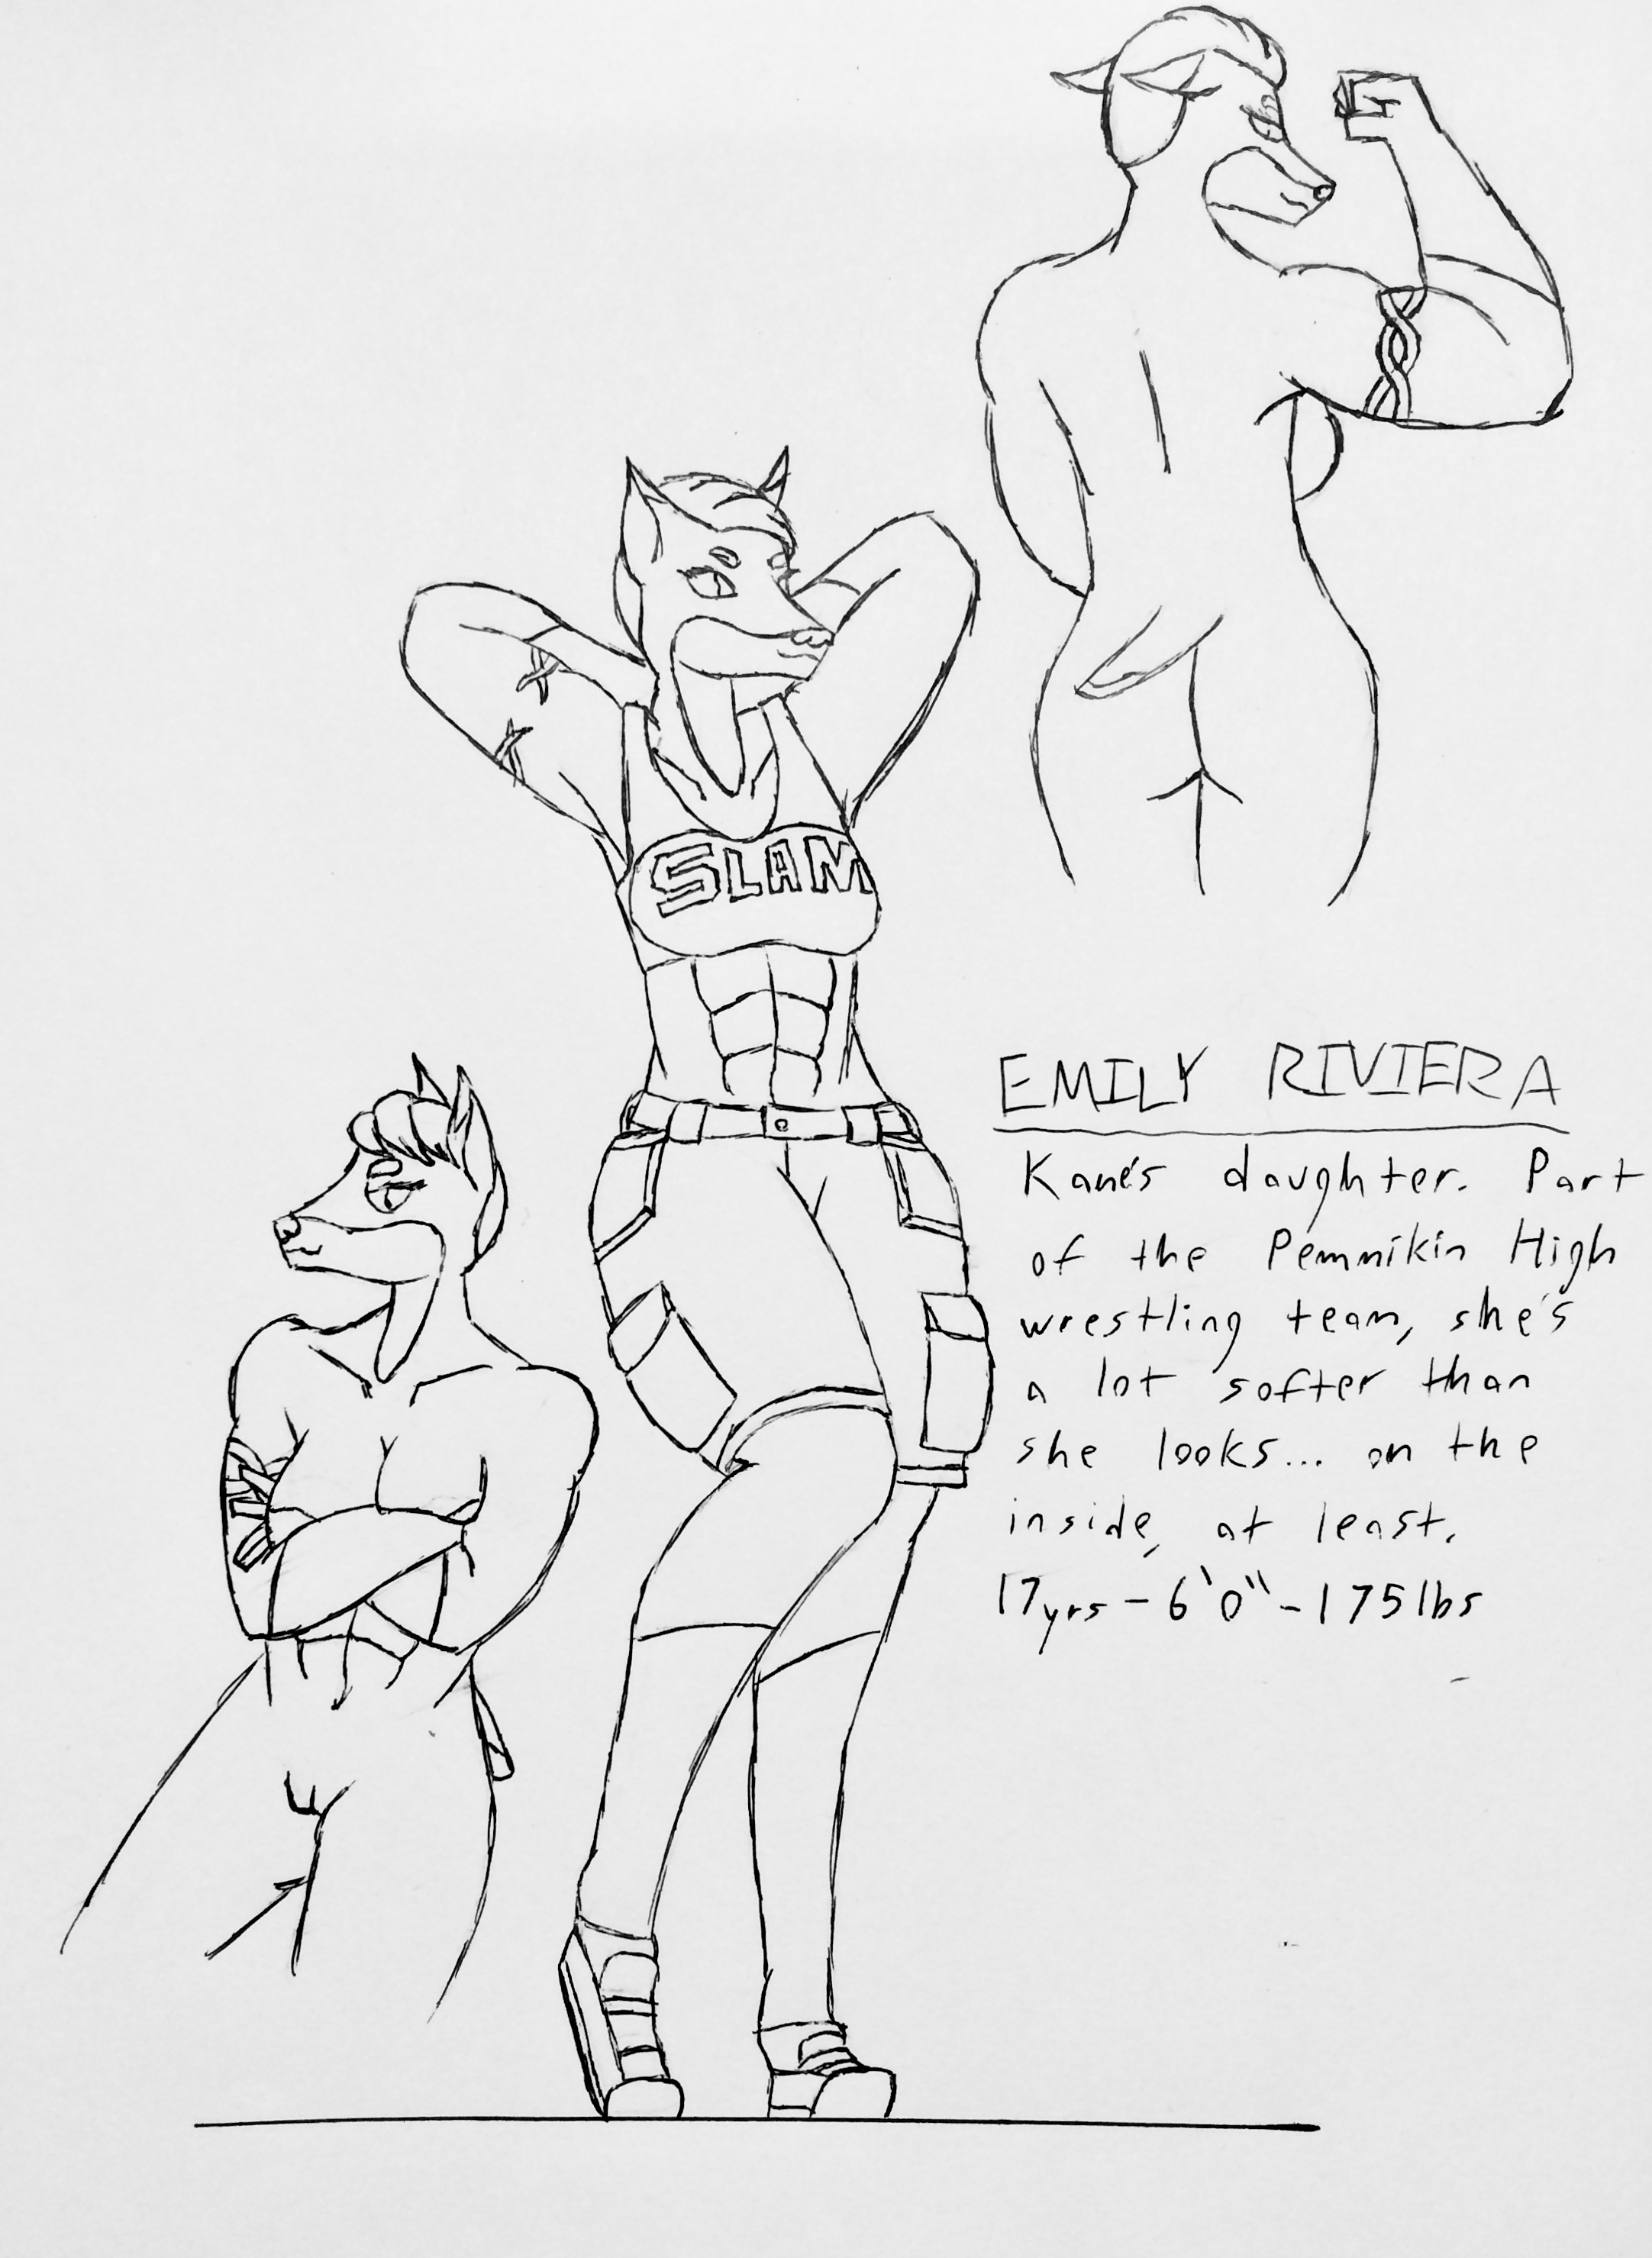 SLAM
EMILY RIVIERA
Kane's daughter. Part
of the Pemnikin High
wrestling team, she's
a lot softer than
she looks... on the
inside, at least.
17yrs - 6'0" - 175lbs